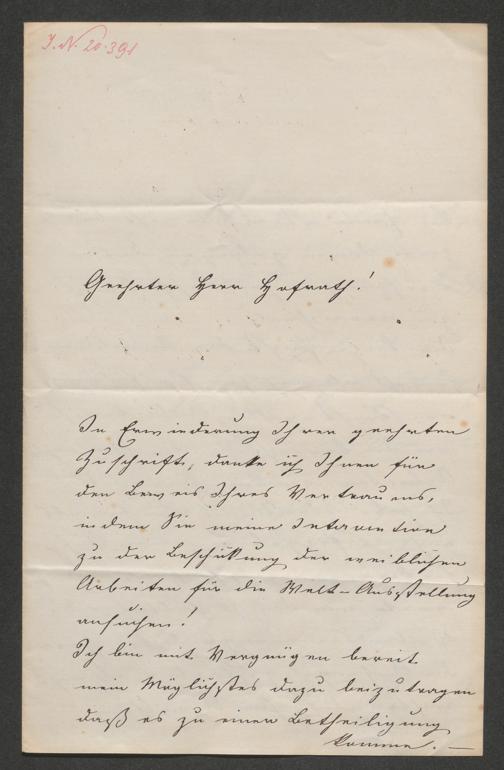 J. N. 20.391
Geehrter Herr Hofrath!
In Erwiederung Ihrer geehrten
Zuschrift, danke ich Ihnen für
den Beweis Ihres Vertrauens,
indem Sie meine Intervention
zu der Beschikung der weiblichen
Arbeiten für die Welt-Ausstellung
ansuchen!
Ich bin mit Vergnügen bereit
mein Möglichstes dazu beizutragen
daß es zu einer Betheiligung
komme. —